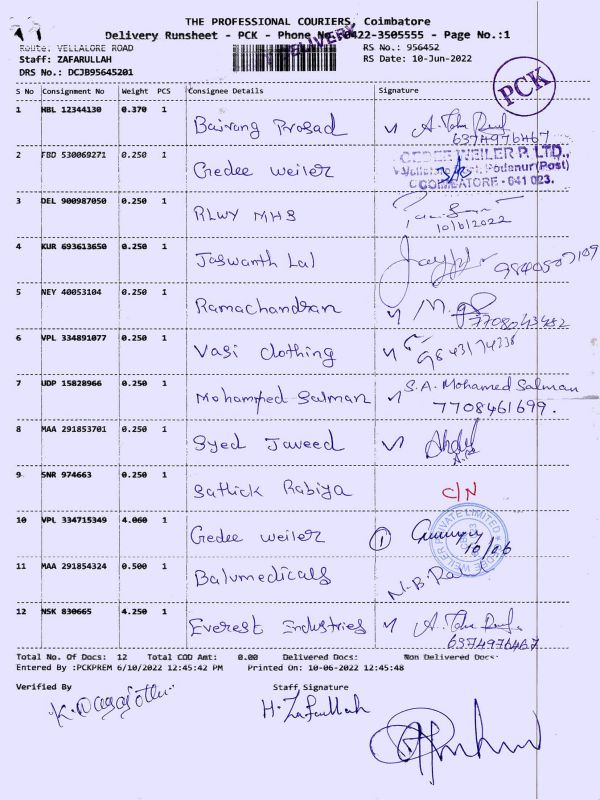 THE PROFESSIONAL COURIERS, Coimbatore
Delivery Runsheet - PCK - Phone No.:0422-3505555 - Page No.:1
DELIVERY
Route: VELLALORE ROAD
RS No.: 956452
Staff: ZAFARULLAH
RS Date: 10-Jun-2022
DRS No.: DCJB95645201
PCK
S No Consignment No Weight PCS Consignee Details Signature
1 HBL 12344130 0.370 1 Bairang Prosad
6374976467
2 FBD 530069271 0.250 1 Gedee weiler
GEDEE WEILER P. LTD.,
Podanur(Post)
COIMBATORE - 641 023.
3 DEL 900987050 0.250 1 RLWY MHS
10/6/2022
4 KUR 693613650 0.250 1 Jaswanth Lal
5 NEY 40053104 0.250 1 Ramachandran
7708043452
6 VPL 334891077 0.250 1 Vasi clothing
7 UDP 15828966 0.250 1 Mohammed Salman S.A. Mohamed Salman
7708461699.
8 MAA 291853701 0.250 1 Syed Javeed
9 SNR 974663 0.250 1 Sathick Rabiya C/N
10 VPL 334715349 4.060 1 Gedee weiler 1
10/06
11 MAA 291854324 0.500 1 Balumedicals
12 NSK 830665 4.250 1 Everest Industries
6374976467
Total No. Of Docs: 12 Total COD Amt: 0.00 Delivered Docs: Non Delivered Docs:
Entered By :PCKPREM 6/10/2022 12:45:42 PM Printed On: 10-06-2022 12:45:48
Verified By Staff Signature
H. Zafarullah